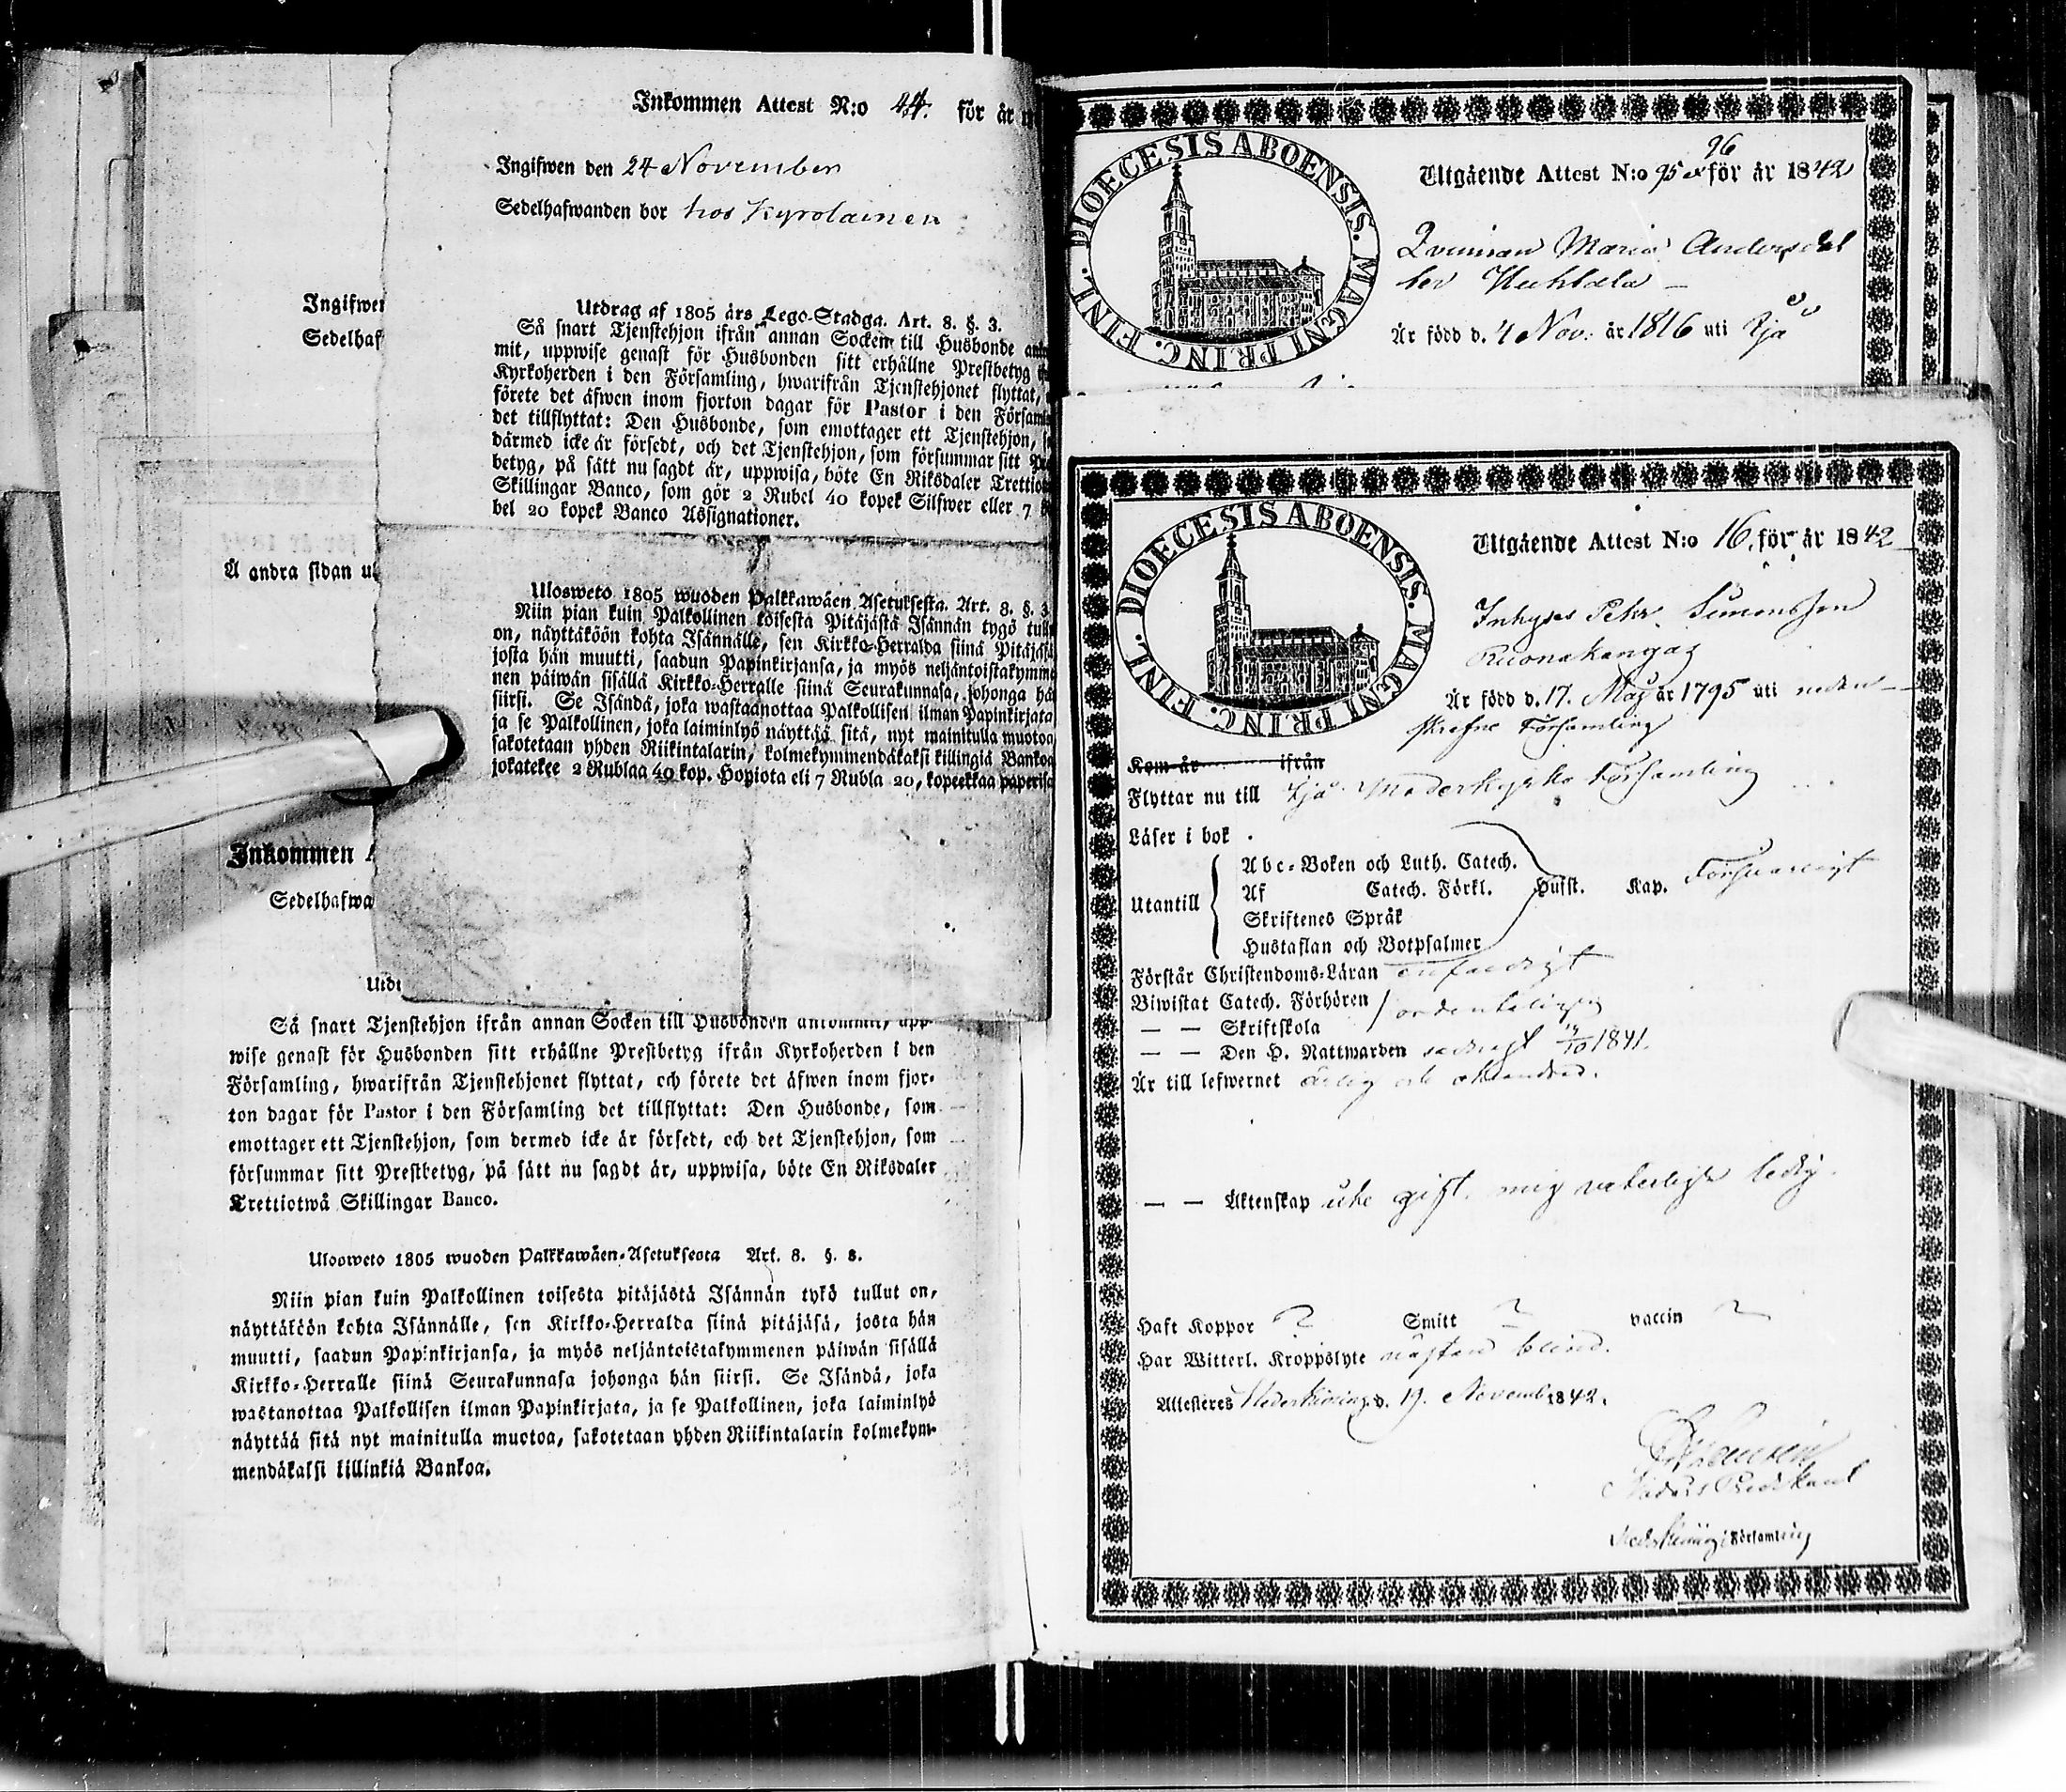 Inkommen Attest N:o 44. för år
Ingifwen den 24 November
Sedelhafwanden bor hos Kyrolainen
Utdrag af 1805 års Lego-Stadga. Art. 8. §. 3.
Så snart Tjenstehjon ifrån annan Socken till Husbonde
mit, uppwise genast för Husbonden sitt erhållne Prestbetyg
Kyrkoherden i den Församling, hwarifrån Tjenstehjonet flyttat,
förete det äfwen inom fjorton dagar för Pastor i den
det tillflyttat: Den Husbonde, som emottager ett Tjenstehjon,
därmed icke är försedt, och det Tjenstehjon, som försummar sitt
betyg, på sätt nu sagdt är, uppwisa, böte En Riksdaler
Skillingar Banco, som gör 2 Rubel 40 kopek Silfwer eller 7
bel 20 kopek Banco Assignationer.
Ulosweto 1805 wuoden Palkkawäen Asetuksesta. Art. 8. §. 3
Niin pian kuin Palkollinen toisesta Pitäjästä Isännän tygö
on, näyttäköön kohta Isännälle, sen Kirkko-Herralda siinä
josta hän muutti, saadun Papinkirjansa, ja myös
nen päiwän sisällä Kirkko-Herralle siinä Seurakunnasa, johonga
siirsi. Se Isändä, joka wastaanottaa Palkollisen ilman Papinkirjata
ja se Palkollinen, joka laiminlyö näyttää sitä, nyt mainitulla muotoa
sakotetaan yhden Riikintalarin, kolmekymmendäkaksi killingiä Bankoa
jokatekee 2 Rublaa 40 kop. Hopiota eli 7 Rubla 20, kopeekkaa paperisa
Ingifwe
Sedelhaf
Å andra sidan u
Inkommen A
Sedelhafwa
Utd
Så snart Tjenstehjon ifrån annan Socken till Husbonden ankommit, upp-
wise genast för Husbonden sitt erhållne Prestbetyg ifrån Kyrkoherden i den
Församling, hwarifrån Tjenstehjonet flyttat, och förete det äfwen inom fjor-
ton dagar för Pastor i den Församling det tillflyttat: Den Husbonde, som
emottager ett Tjenstehjon, som dermed icke är försedt, och det Tjenstehjon, som
försummar sitt Prestbetyg, på sätt nu sagdt är, uppwisa, böte En Riksdaler
Trettiotwå Skillingar Banco.
Ulosweto 1805 wuoden Palkkawäen-Asetuksesta Art. 8. §. 3.
Niin pian kuin Palkollinen toisesta pitäjästä Isännän tykö tullut on,
näyttäköön kohta Isännälle, sen Kirkko-Herralda siinä pitäjäsä, josta hän
muutti, saadun Papinkirjansa, ja myös neljäntoistakymmenen päiwän sisällä
Kirkko-Herralle siinä Seurakunnasa johonga hän siirsi. Se Isändä, joka
wastanottaa Palkollisen ilman Papinkirjata, ja se Palkollinen, joka laiminlyö
näyttää sitä nyt mainitulla muotoa, sakotetaan yhden Riikintalarin kolmekym-
mendäkaksi killinkiä Bankoa.
DIOECESIS ABOENSIS. MAGNI PRINC. FINL.
Utgående Attest N:o 95 96 för år 1842
Qvinnan Maria Andersdot
ter Huhtala
Är född d. 4 Nov. år 1816 uti Ijå
DIOECESIS ABOENSIS. MAGNI PRINC. FINL.
Utgående Attest N:o 16. för år 1842
Inhyses Pehr Simonsson
Ruonakangas
Är född d. 17. Maj år 1795 uti nedan-
skrefne Församling
Kom år ifrån
Flyttar nu till Ijå Moderkyrko Församling
Läser i bok
Utantill
Abc-Boken och Luth. Catech.
Af Catech. Förkl. Hufst. Kap. Försvarligt
Skriftenes Språk
Hustaflan och Botpsalmer
Förstår Christendoms-Läran enfaldigt
Biwistat Catech. Förhören ordenteligen
— — Skriftskola
— — Den H. Nattwarden sednast 17/10 1841.
Är till lefwernet ärlig och oklandrad.
— — Äktenskap icke gift, mig veterligen ledig.
Haft Koppor ? Smitt ? vaccin ?
Har Witterl. Kroppslyte nästan blind.
Attesteres Nederkiiming d. 19. November 1842.
Församling